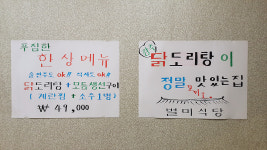 푸짐한
한식메뉴
술안주도 ok!! 식사도 ok!!
닭도리탕 + 모듬생선구이
(계란찜 + 소주1병)
₩ 49,000
닭도리탕 이
정말 맛있는집
별미식당